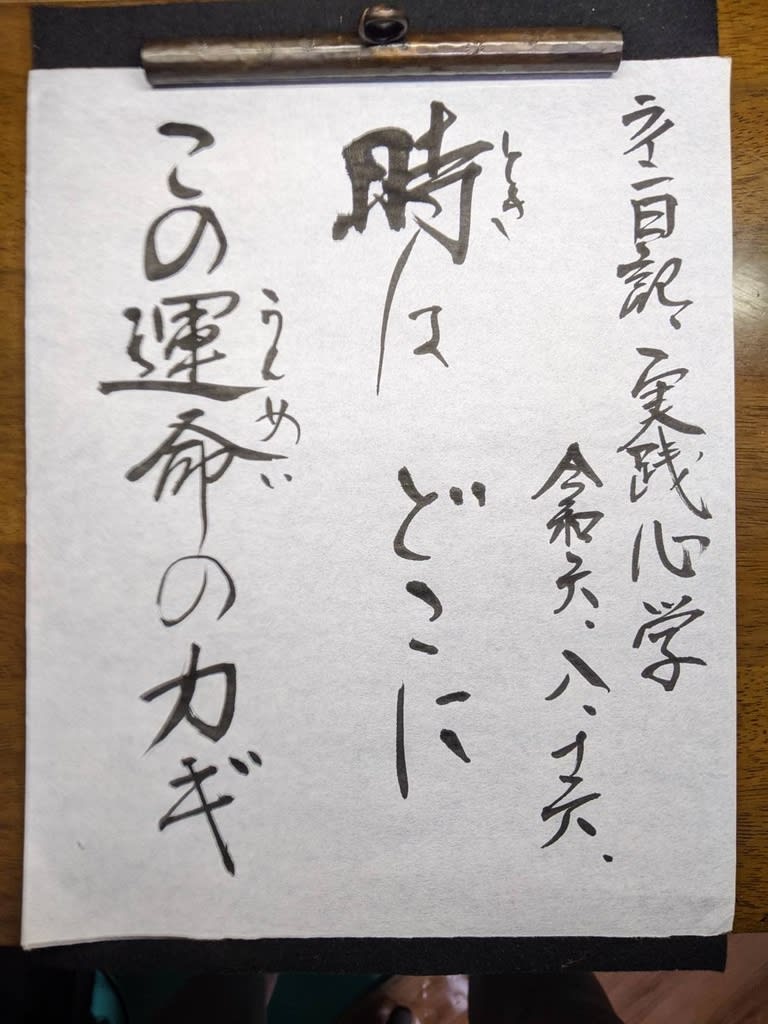 日記、実践心学
令和六、八、十六、
とき
時は どこに
うんめい
この運命のカギ